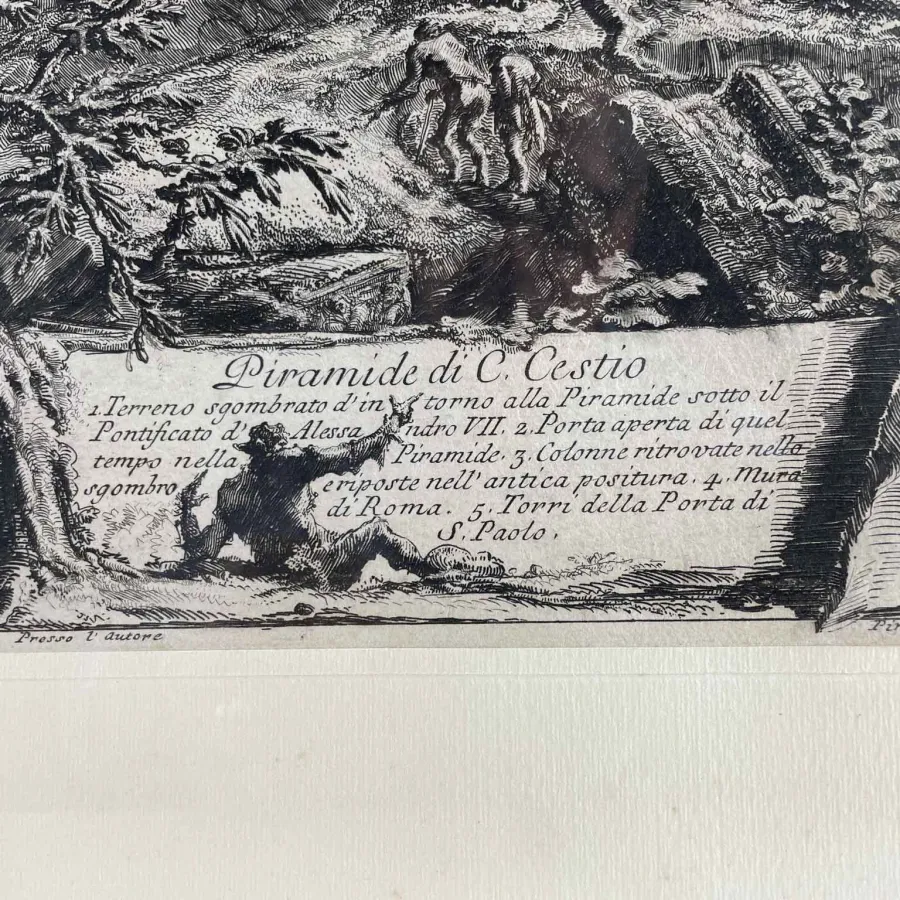 Piramide di C. Cestio
1. Terreno sgombrato d'intorno alla Piramide sotto il
Pontificato d' Alessandro VII. 2. Porta aperta di quel
tempo nella Piramide. 3. Colonne ritrovate nello
sgombro e riposte nell' antica positura. 4. Mura
di Roma. 5. Torri della Porta di
S. Paolo.
Presso l' autore